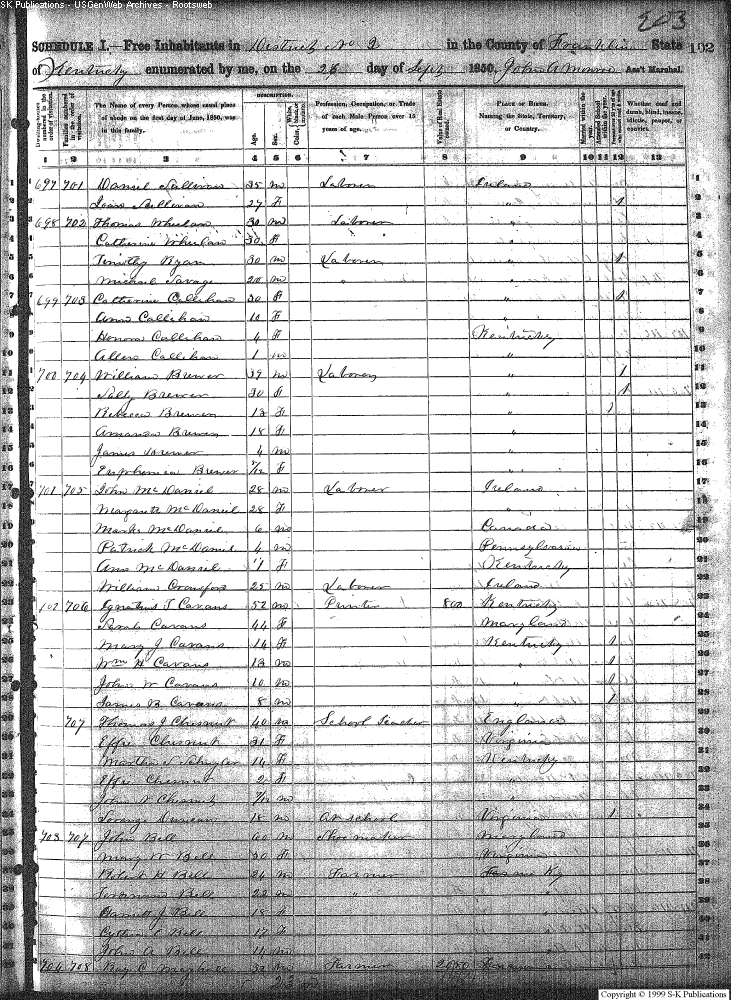 SK Publications - USGenWeb Archives - Rootsweb
203
SCHEDULE I.—Free Inhabitants in District No 2 in the County of Franklin State 102
of Kentucky enumerated by me, on the 28 day of Sept 1850. Ass't Marshal.
Dwelling-houses numbered in the order of visitation. Families numbered in the order of visitation. The Name of every Person whose usual place of abode on the first day of June, 1850, was in this family. DESCRIPTION. Age. Sex. Color, White, black, or mulatto. Profession, Occupation, or Trade of each Male Person over 15 years of age. Value of Real Estate owned. PLACE OF BIRTH. Naming the State, Territory, or Country. Married within the year. Attended School within the year. Whether deaf and dumb, blind, insane, idiotic, pauper, or convict.
1 2 3 4 5 6 7 8 9 10 11 12 13
1 697 701 Daniel Sullivan 35 m Laborer Ireland 1
2 Sullivan 27 F " 1 2
3 698 702 Thomas Whelan 30 m Laborer " 3
4 Catherine Whelan 30 F " 4
5 Timothy Ryan 30 m Laborer " 1 5
6 Michael Savage 20 m " " 6
7 699 703 Catherine Callihan 30 F " 1 7
8 Ann Callihan 10 F " 8
9 Honora Callihan 4 F Kentucky 9
10 Allen Callihan 1 m " 10
11 700 704 William Brewer 39 m Laborer " 1 11
12 Sally Brewer 30 F " 1 12
13 Rebecca Brewer 13 F " 1 13
14 Amanda Brewer 18 F " 14
15 James Brewer 4 m " 15
16 Brewer F " 16
17 701 705 John McDaniel 28 m Laborer Ireland 17
18 Margarett McDaniel 28 F " 18
19 McDaniel 6 m Canada 19
20 Patrick McDaniel 4 m Pennsylvania 20
21 Ann McDaniel 1 F Kentucky 21
22 William Crawford 25 m Laborer Ireland 22
23 102 706 Ignatius T Cavans 52 m Printer 800 Kentucky 23
24 Sarah Cavans 44 F Maryland 24
25 Mary J Cavans 14 F Kentucky 1 25
26 Wm H Cavans 13 m " 1 26
27 John W Cavans 10 m " 1 27
28 James B Cavans 8 m " 1 28
29 707 Thomas J Chesnut 40 m School Teacher England 29
30 Effie Chesnut 31 F Virginia 30
31 Martha 14 F Kentucky 31
32 Effie Chesnut 2 F " 32
33 John Chesnut m " 33
34 Duncan 18 m At school Virginia 1 34
35 703 707 John Bell 60 m Shoemaker Maryland 35
36 Mary W Bell 30 F Virginia 36
37 Robert H Bell 24 m Farmer Ky 37
38 Bell 22 m " " 38
39 Harriet J Bell 18 F " 39
40 Bell 17 F " 40
41 John A Bell 14 m " 41
42 704 708 Farmer 2000 42
Copyright © 1999 S-K Publications